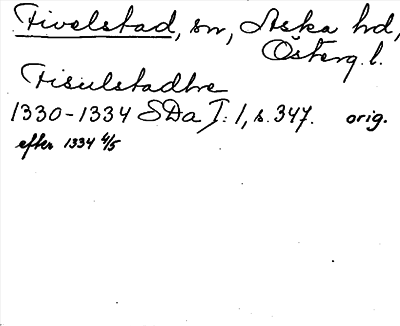 Fivelstad, sn, Aska hd,
Österg. l.
Fisulstadhe
1330-1334 SDa I: 1, s. 347. orig.
efter 1334 4/5